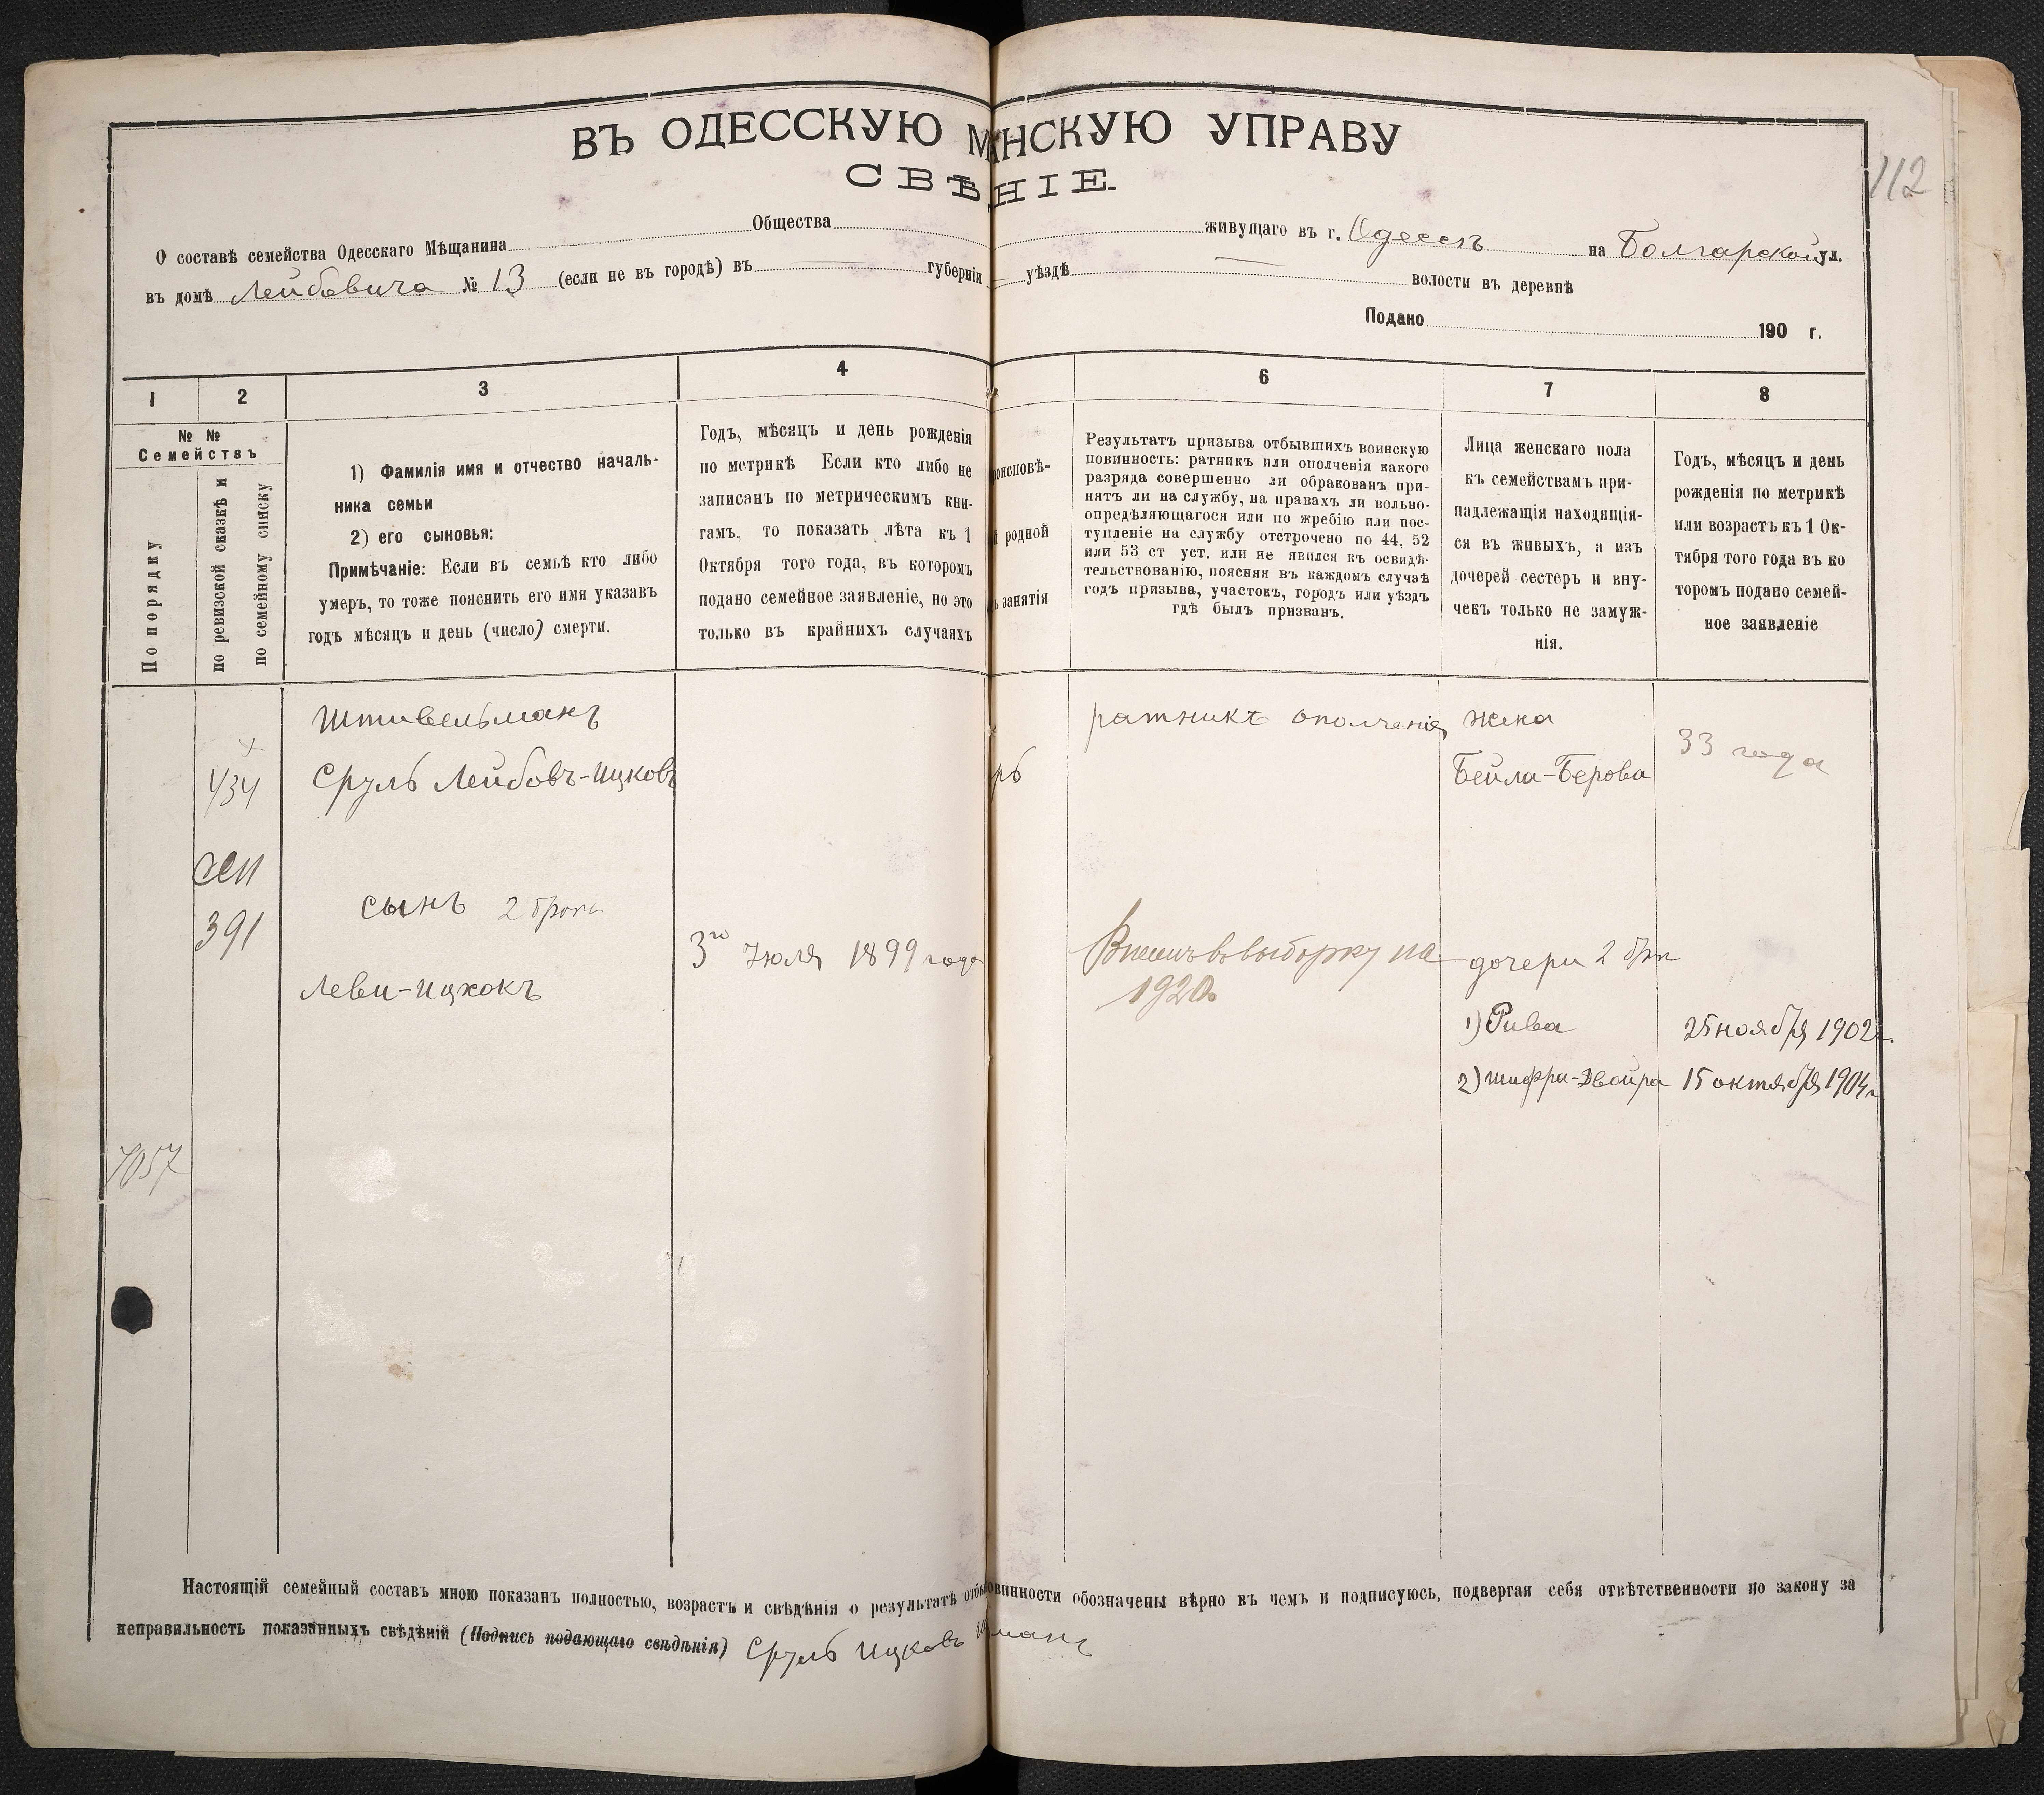 ВЪ ОДЕССКУЮ М НСКУЮ УПРАВУ
СВѢ НІЕ.
112
О составѣ семейства Одесскаго Мѣщанина Общества живущаго въ г. Одессѣ на Болгарской ул.
въ домѣ Лейбовича № 13 (если не въ городѣ) въ губерніи уѣздѣ волости въ деревнѣ
Подано 190 г.
1 2 3 4 6 7 8
№ №
Семействъ
По порядку
по ревизской сказкѣ и
по семейному списку
1) Фамилія имя и отчество началь-
ника семьи
2) его сыновья:
Примѣчаніе: Если въ семьѣ кто либо
умеръ, то тоже пояснить его имя указавъ
годъ мѣсяцъ и день (число) смерти.
Годъ, мѣсяцъ и день рожденія
по метрикѣ Если кто либо не
записанъ по метрическимъ кни-
гамъ, то показать лѣта къ 1
Октября того года, въ которомъ
подано семейное заявленіе, но это
только въ крайнихъ случаяхъ
роисповѣ-
й родной
ь занятія
Результатъ призыва отбывшихъ воинскую
повинность: ратникъ или ополченія какого
разряда совершенно ли обракованъ при-
нятъ ли на службу, на правахъ ли вольно-
опредѣляющагося или по жребію или пос-
тупленіе на службу отсрочено по 44, 52
или 53 ст уст. или не явился къ освидѣ-
тельствованію, поясняя въ каждомъ случаѣ
годъ призыва, участокъ, городъ или уѣздъ
гдѣ былъ призванъ.
Лица женскаго пола
къ семействамъ при-
надлежащія находящія-
ся въ живыхъ, а изъ
дочерей сестеръ и вну-
чекъ только не замуж-
нія.
Годъ, мѣсяцъ и день
рожденія по метрикѣ
или возрастъ къ 1 Ок-
тября того года въ ко
торомъ подано семей-
ное заявленіе
Штивельманъ
434
Сруль Лейбовъ-Ицковъ
рь
ратникъ ополченія
жена
Бейла-Берова
33 года
391
сынъ 2 брака
Леви-Ицхокъ
3го Іюля 1899 года
Внесенъ въ выборку на
1920
дочери 2 брак
1) Рива
25 ноября 1902 г.
2) Шифра-Двойра
15 октября 1904 г.
1057
Настоящій семейный составъ мною показанъ полностью, возрастъ и свѣдѣнія о результатѣ отбы овинности обозначены вѣрно въ чемъ и подписуюсь, подвергая себя отвѣтственности по закону за
неправильность показанныхъ свѣдѣній (Подпись подающаго свѣдѣнія) Сруль Ицковъ Ш манъ